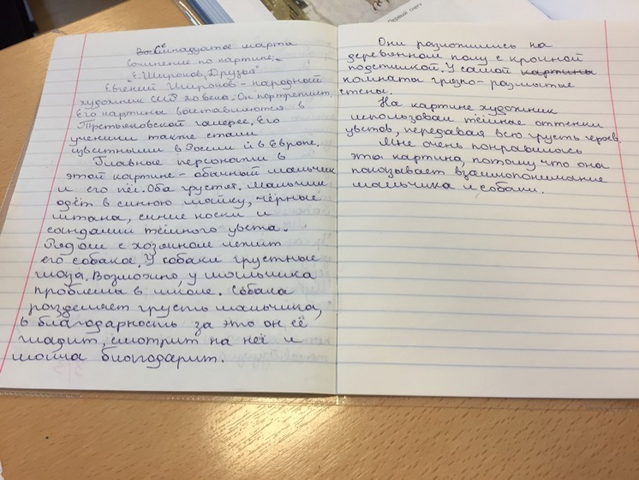 Семнадцатое марта
Сочинение по картине,
"Е.Широков, Друзья"
Евгений Широков - народный
художник СССР 20 века. Он портретист.
Его картины выставляются в
Третьяковской галерее. Его
ученики также стали
извесными в России и в Европе.
Главные персонажи в
этой картине - обычный мальчик
и его пёс. Оба грустят. Мальчик
одет в синюю майку, чёрные
штаны, синие носки и
сандали тёмного цвета.
Рядом с хозяином лежит
его собака. У собаки грустные
глаза. Возможно, у мальчика
проблемы в школе. Собака
разделяет грусть мальчика,
в благодарность за это он её
гладит, смотрит на неё и
молча благодарит.
Они разложились на
деревянном полу с красной
подстилкой. У самой картины
комната грязно-размытые
стены.
На картине художник
использовал тёмные оттенки
цветов, передавая всю грусть героев.
Мне очень понравилась
эта картина, потому что она
показывает взаимопонимание
мальчика и собаки.